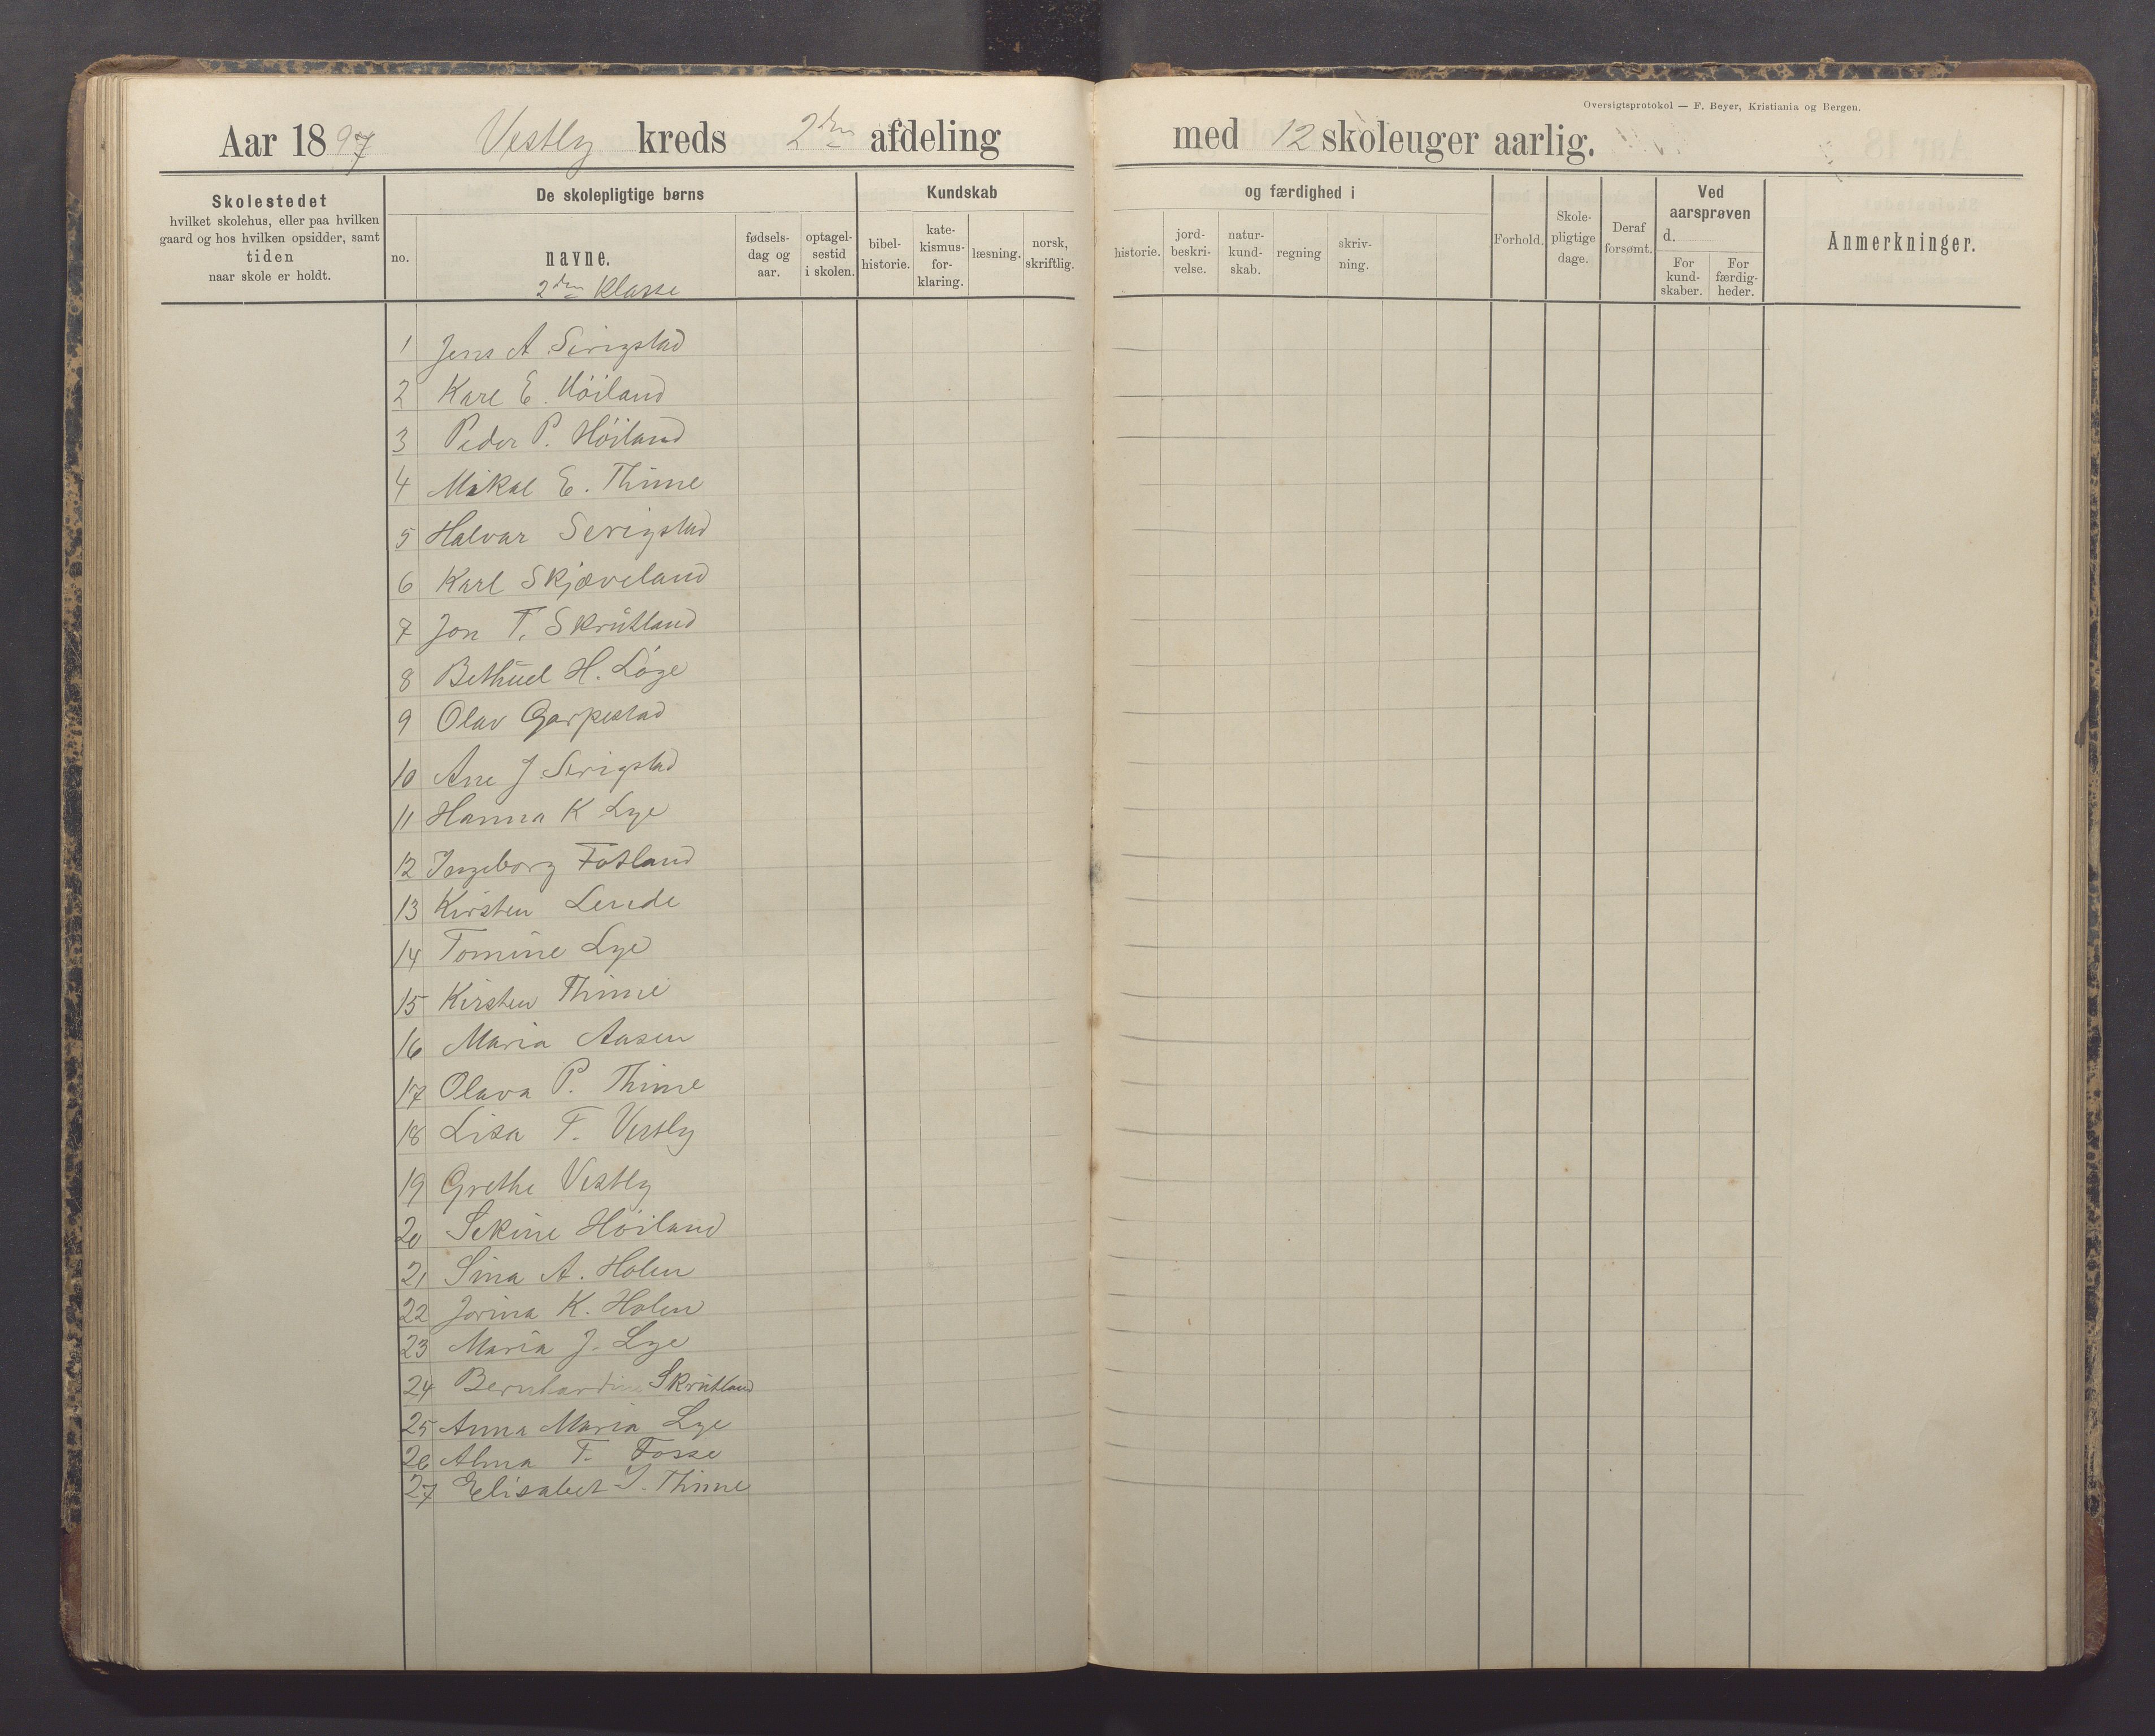 Oversigtsprotokol — F. Beyer, Kristiania og Bergen.
Aar 1897 Vestly kreds 2den afdeling med 12 skoleuger aarlig.
Skolestedet
hvilket skolehus, eller paa hvilken
gaard og hos hvilken opsidder, samt
tiden
naar skole er holdt.
De skolepligtige børns
no.
navne.
2den Klasse
fødsels-
dag og
aar.
optagel-
sestid
i skolen.
Kundskab
bibel-
historie.
kate-
kismus-
for-
klaring.
læsning.
norsk,
skriftlig.
og færdighed i
historie.
jord-
beskri-
velse.
natur-
kund-
skab.
regning
skriv-
ning.
Forhold.
Skole-
pligtige
dage.
Deraf
forsømt.
Ved
aarsprøven
d.
For
kund-
skaber.
For
færdig-
heder.
Anmerkninger.
1 Jens A Serigstad
2 Karl E. Höiland
3 Peder P. Höiland
4 Mikal E. Thime
5 Halvar Serigstad
6 Karl Skjæveland
7 Jon T. Skrutland
8 Bethuel H. Löge
9 Olav Garpestad
10 Ane J Serigstad
11 Hanna K Lye
12 Ingeborg Fotland
13 Kirsten Lende
14 Tomine Lye
15 Kirsten Thime
16 Maria Aasen
17 Olava P. Thime
18 Lisa T. Vestly
19 Grethe Vestly
20 Sekine Höiland
21 Sina A. Holen
22 Jorina K. Holen
23 Maria J. Lye
24 Bernhardine Skrutland
25 Anna Maria Lye
26 Alma T. Fosse
27 Elisabet I. Thime